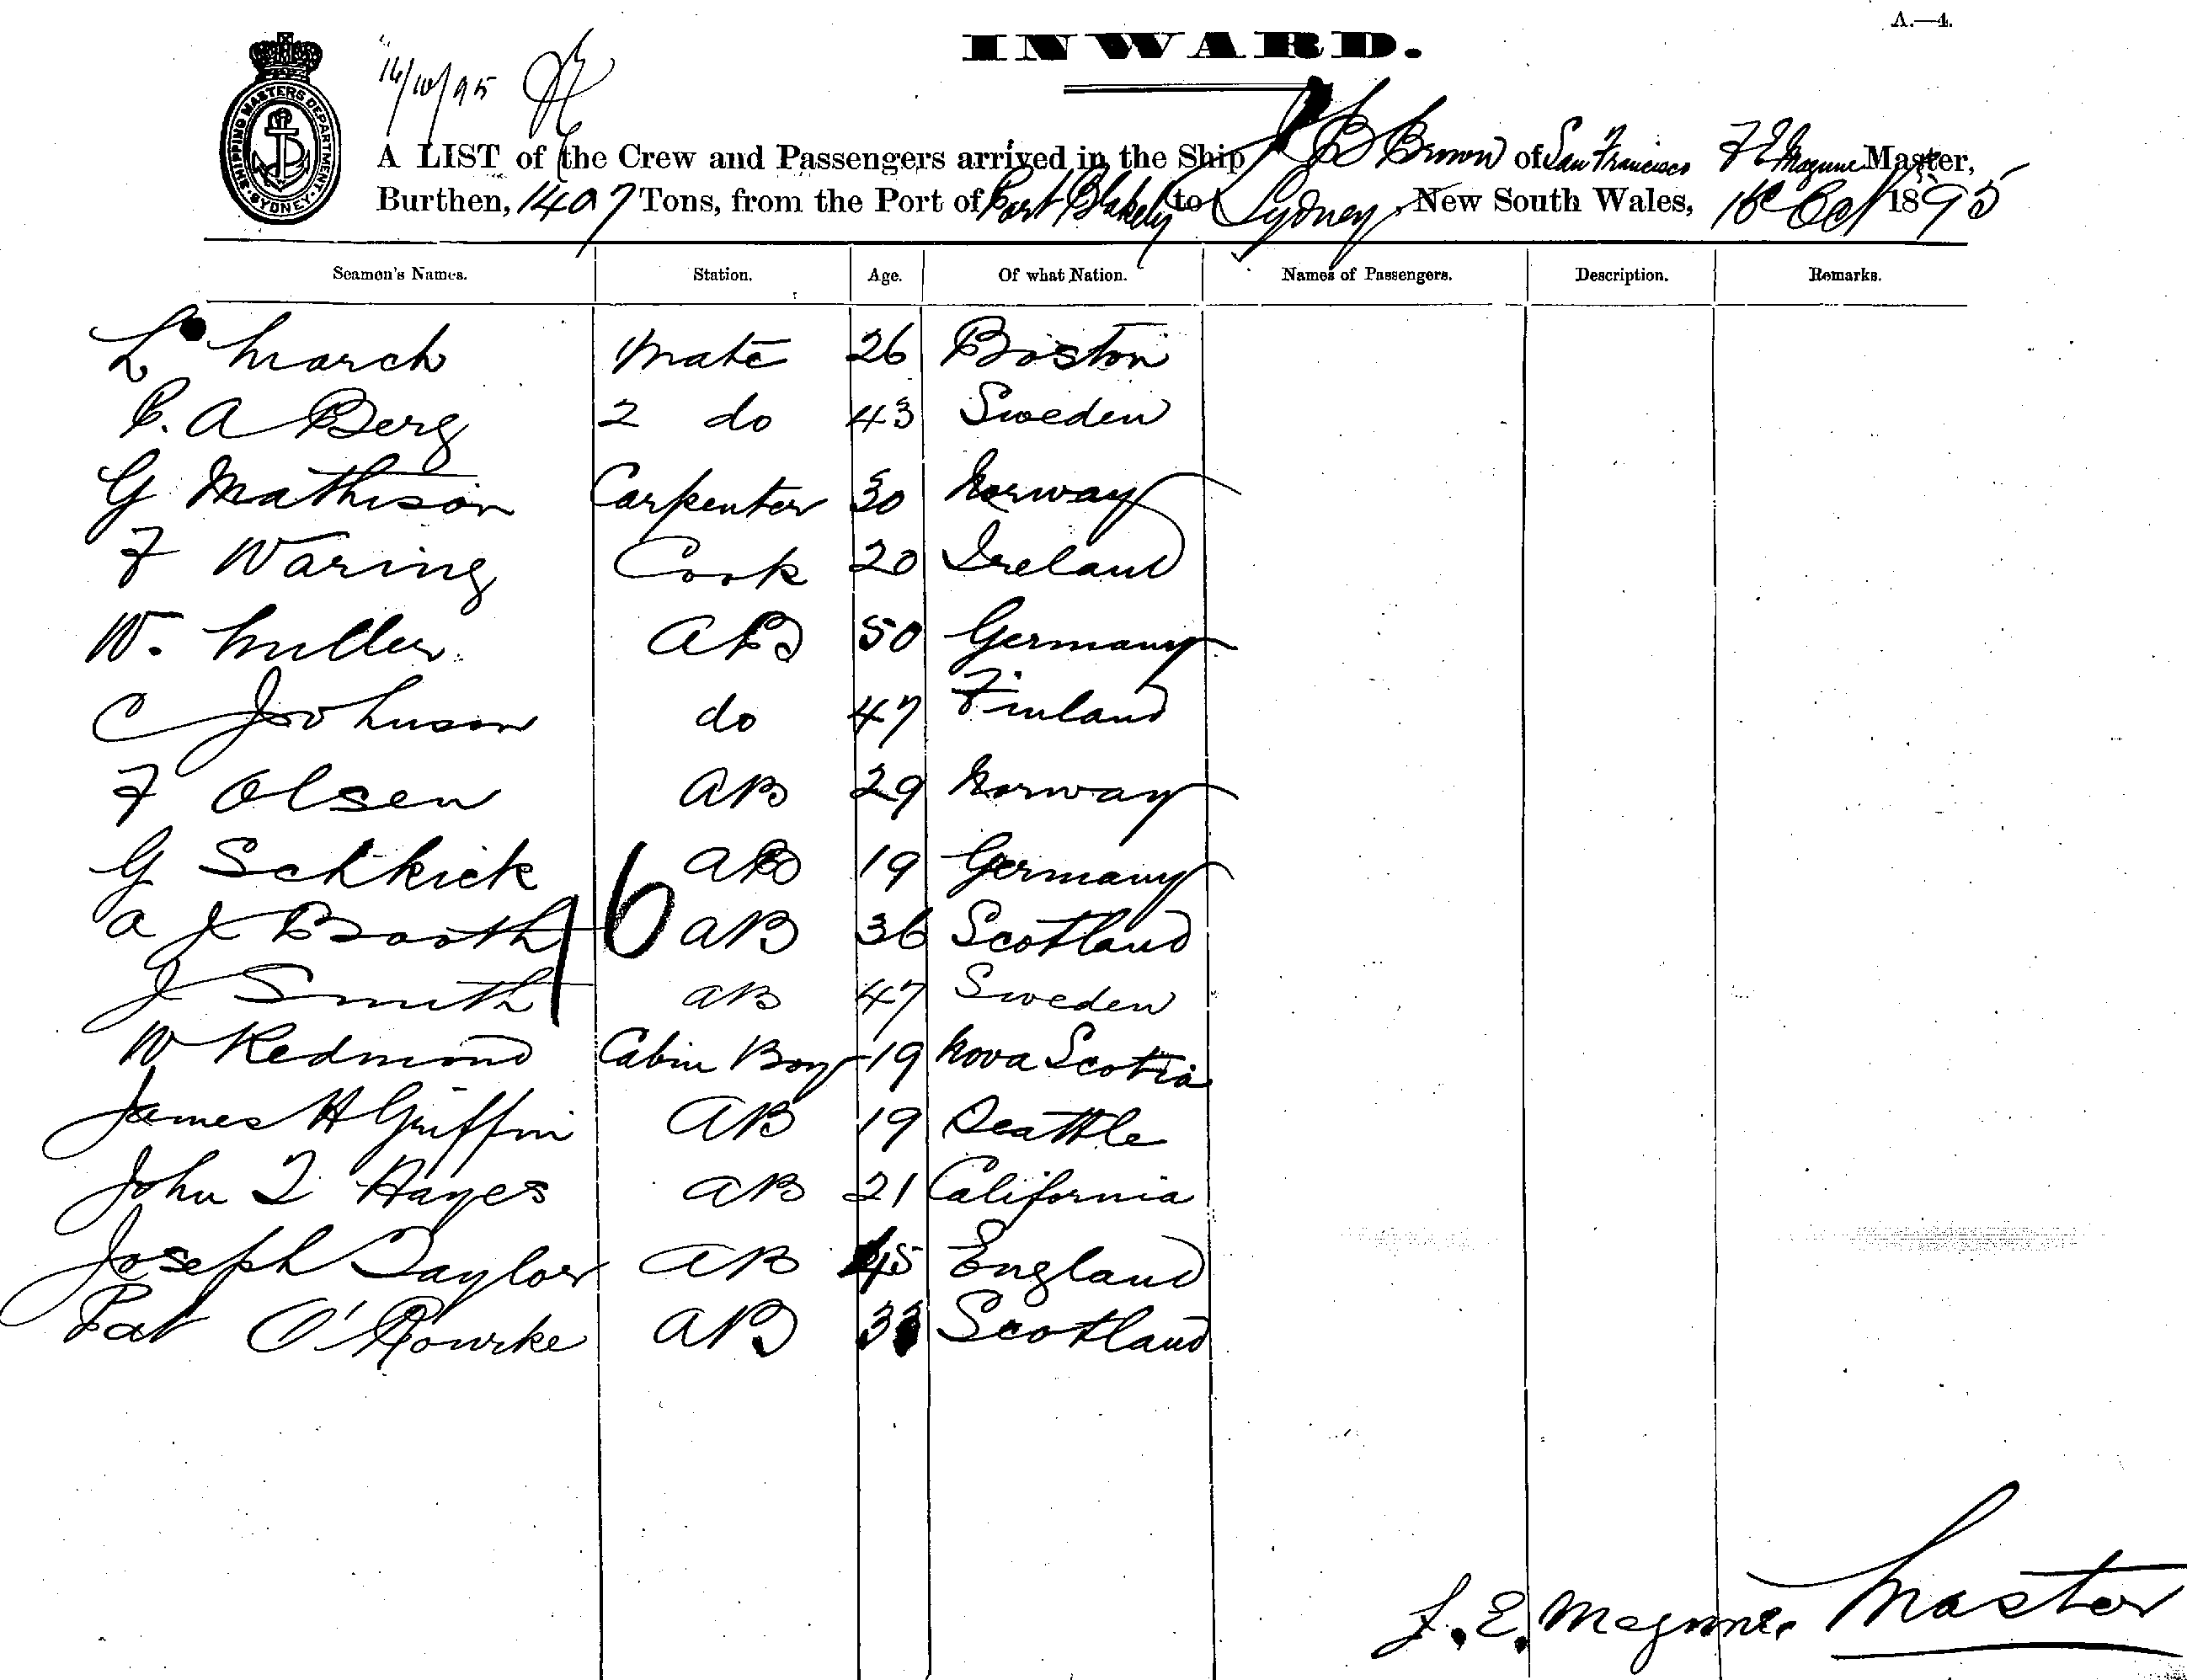 A.—4.
INWARD.
16/10/95
SHIPPING MASTERS DEPARTMENT. SYDNEY.
A LIST of the Crew and Passengers arrived in the Ship J B Brown of San Francisco F E Maguire Master,
Burthen, 1407 Tons, from the Port of Port Blakely to Sydney, New South Wales, 16 Oct 1895
Seamen's Names. Station. Age. Of what Nation. Names of Passengers. Description. Remarks.
L March Mate 26 Boston
C. A Berg 2 do 43 Sweden
G Mathison Carpenter 30 Norway
F Waring Cook 20 Ireland
W. Muller AB 50 Germany
C Johnson do 47 Finland
F Olsen AB 29 Norway
G Schkick AB 19 Germany
A J Booth AB 36 Scotland
16
J Smith AB 47 Sweden
W Redmond Cabin Boy 19 Nova Scotia
James H Griffin AB 19 Seattle
John T Hayes AB 21 California
Joseph Taylor AB 45 England
Pat O'Rourke AB 33 Scotland
F. E. Maguire Master